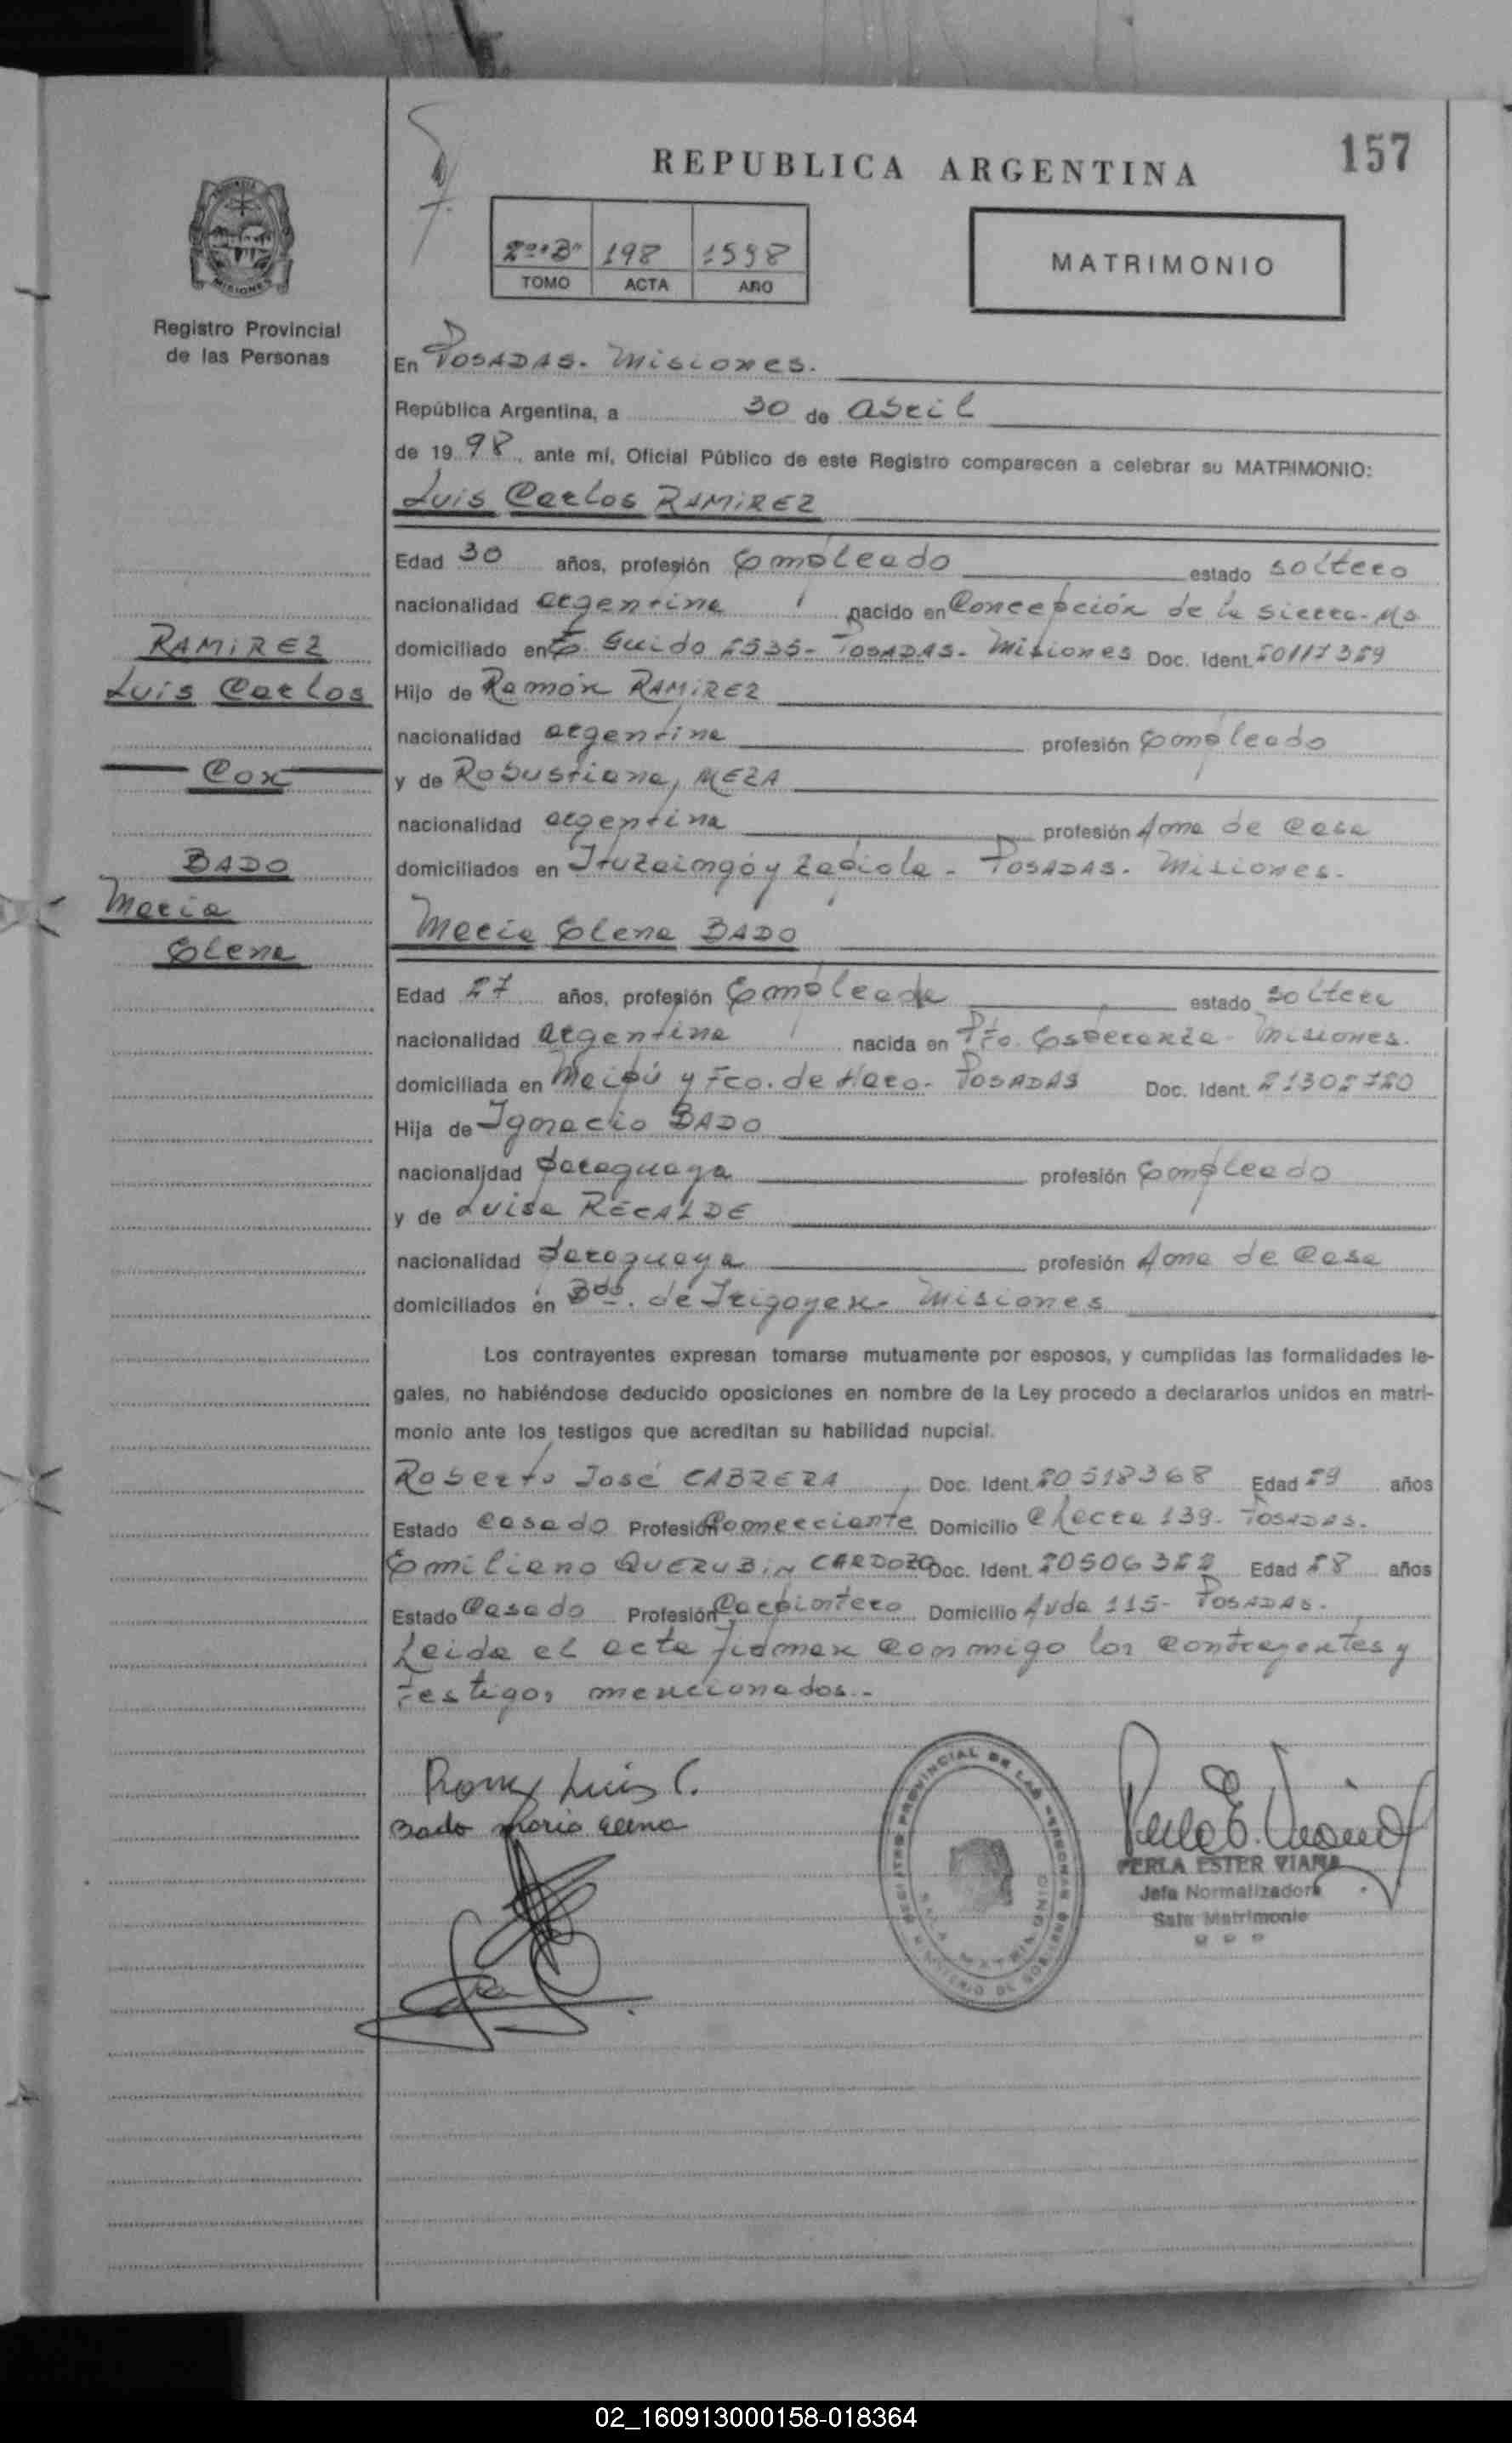 157
REPUBLICA ARGENTINA
2º "B" 198 1998
TOMO ACTA AÑO
MATRIMONIO
MISIONES
Registro Provincial
de las Personas
En POSADAS - Misiones.
República Argentina, a 30 de abril
de 1998, ante mí, Oficial Público de este Registro comparecen a celebrar su MATRIMONIO:
Luis Carlos RAMIREZ
Edad 30 años, profesión Empleado estado soltero
nacionalidad argentina nacido en Concepción de la Sierra-Ms
domiciliado en E. Guido 2535- POSADAS- Misiones Doc. Ident. 20117329
Hijo de Ramón RAMIREZ
nacionalidad argentina profesión Empleado
y de Robustiana MEZA
nacionalidad argentina profesión Ama de Casa
domiciliados en Ituzaingó y - POSADAS. Misiones.
RAMIREZ
Luis Carlos
Con
BADO
Maria
Elena
Maria Elena BADO
Edad 27 años, profesión Empleada estado soltera
nacionalidad argentina nacida en Pto. Esperanza - Misiones.
domiciliada en Maipú y Fco. de Haro- POSADAS Doc. Ident. 21302720
Hija de Ignacio BADO
nacionalidad paraguaya profesión Empleado
y de Luisa RECALDE
nacionalidad paraguaya profesión Ama de Casa
domiciliados en Bdo. de Irigoyen- Misiones
Los contrayentes expresan tomarse mutuamente por esposos, y cumplidas las formalidades le-
gales, no habiéndose deducido oposiciones en nombre de la Ley procedo a declararlos unidos en matri-
monio ante los testigos que acreditan su habilidad nupcial.
Roberto José CABRERA, Doc. Ident. 20518368 Edad 29 años
Estado Casado Profesión Comerciante Domicilio Chacra 139- POSADAS.
Emiliano QUERUBIN CARDOZO Doc. Ident. 20506322 Edad 28 años
Estado Casado Profesión Carpintero Domicilio Avda 115- POSADAS.
Leida el acta firman conmigo los contrayentes y
testigos mencionados.-
Luis C.
Bado Maria Elena
REGISTRO PROVINCIAL DE LAS PERSONAS
MINISTERIO DE GOBIERNO
SALA MATRIMONIO
PERLA ESTER VIANA
Jefa Normalizadora
Sala Matrimonio
02_160913000158-018364